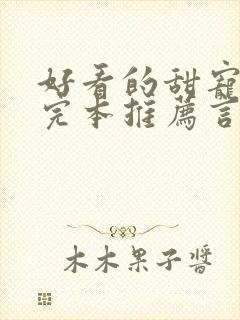 好看的甜寵
完本推薦言
木木果子醬